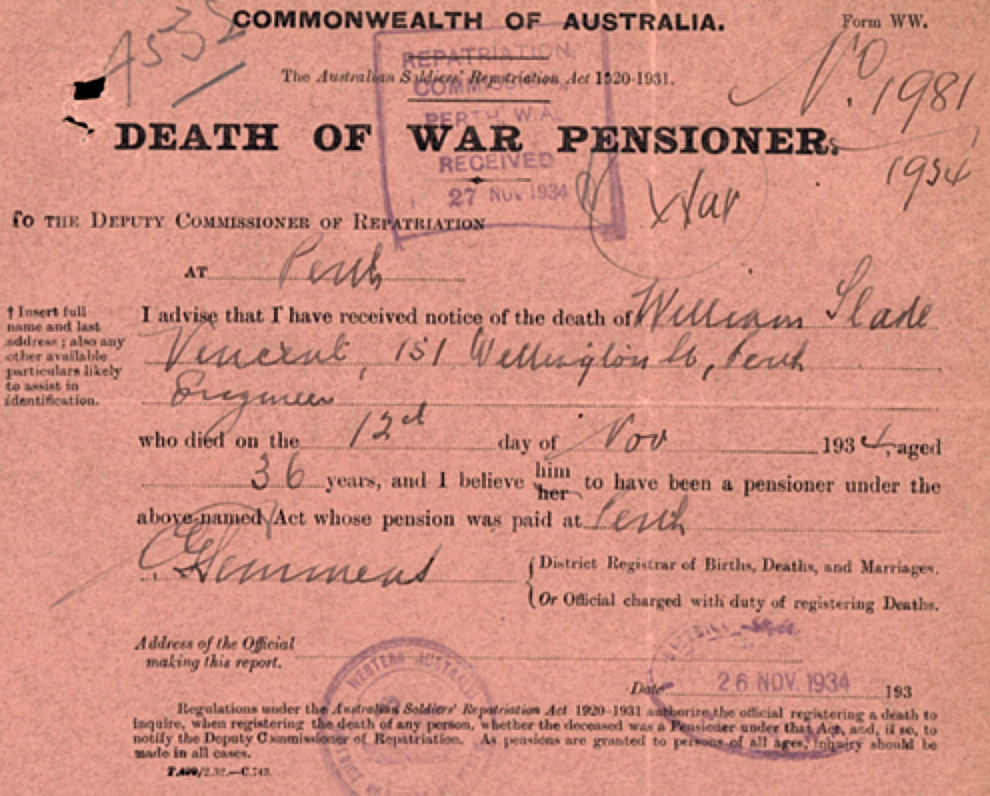 COMMONWEALTH OF AUSTRALIA.
Form WW.
A535
The Australian Soldiers' Repatriation Act 1920-1931.
No. 1981
1934
REPATRIATION
COMMISSION
PERTH, W.A.
RECEIVED
27 NOV 1934
DEATH OF WAR PENSIONER.
TO THE DEPUTY COMMISSIONER OF REPATRIATION
AT Perth
† Insert full
name and last
address; also any
other available
particulars likely
to assist in
identification.
I advise that I have received notice of the death of William Slade
Vincent, 151 Wellington St, Perth
Engineer
who died on the 12d day of Nov 1934, aged
36 years, and I believe him her to have been a pensioner under the
above-named Act whose pension was paid at Perth
District Registrar of Births, Deaths, and Marriages.
Or Official charged with duty of registering Deaths.
Address of the Official
making this report.
WESTERN AUSTRALIA
Date 26 NOV. 1934 193
Regulations under the Australian Soldiers' Repatriation Act 1920-1931 authorize the official registering a death to
inquire, when registering the death of any person, whether the deceased was a Pensioner under that Act, and, if so, to
notify the Deputy Commissioner of Repatriation. As pensions are granted to persons of all ages, inquiry should be
made in all cases.
/2.32.—C.743.